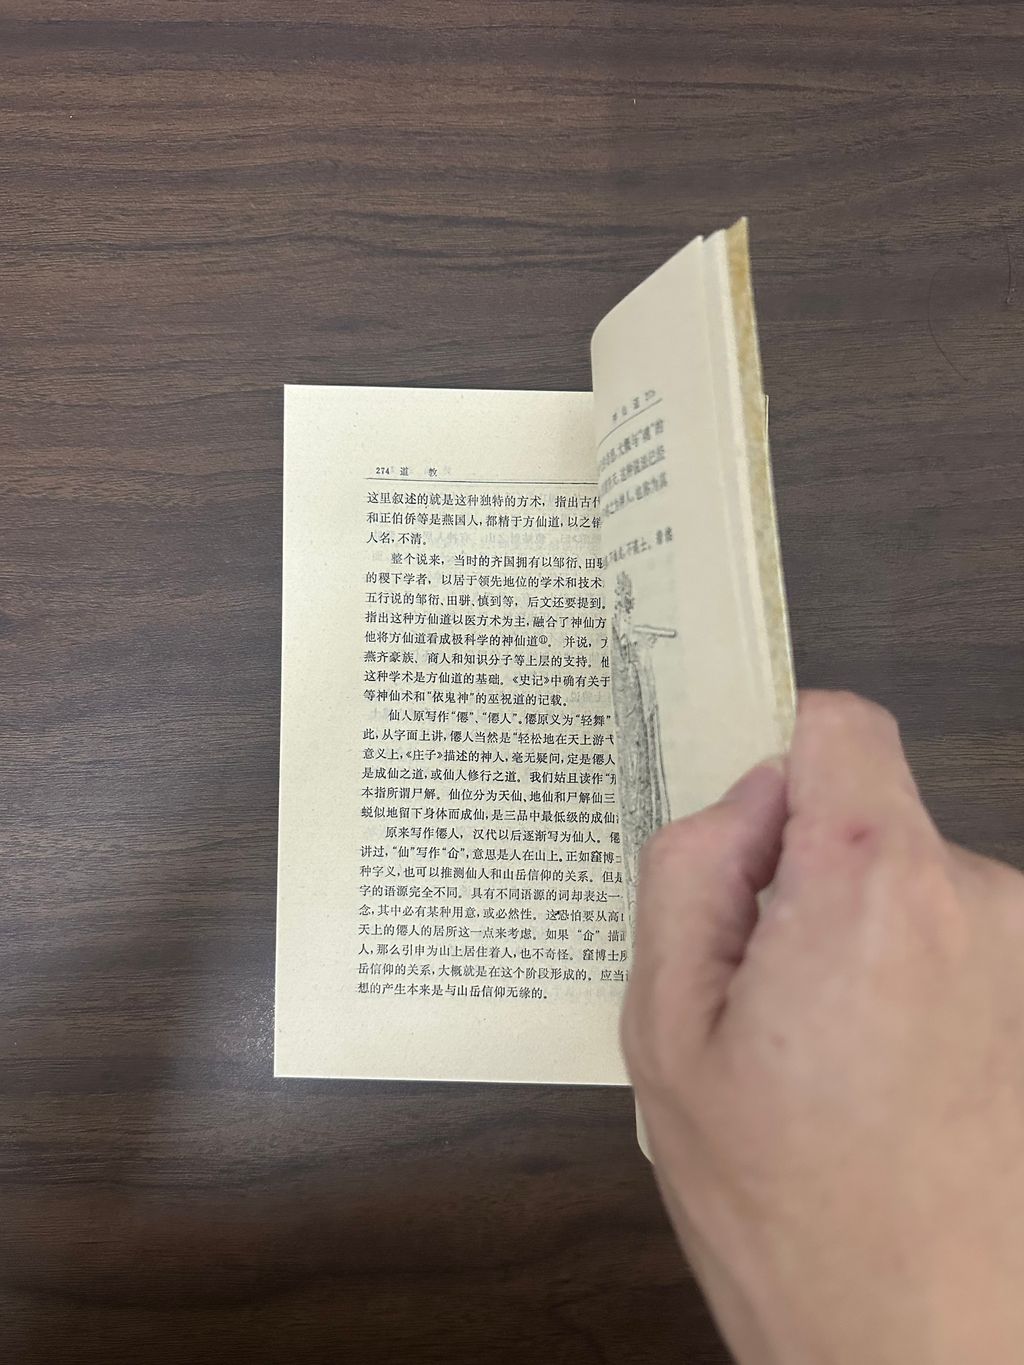 274 道 教
这里叙述的就是这种独特的方术，指出古代
和正伯侨等是燕国人，都精于方仙道，以之
人名，不清。
整个说来，当时的齐国拥有以邹衍、田
的稷下学者，以居于领先地位的学术和技术
五行说的邹衍、田骈、慎到等，后文还要提到。
指出这种方仙道以医方术为主，融合了神仙方
他将方仙道看成极科学的神仙道⑪。并说，
燕齐豪族、商人和知识分子等上层的支持。他
这种学术是方仙道的基础。《史记》中确有关于
等神仙术和“依鬼神”的巫祝道的记载。
仙人原写作“僊”、“僊人”。僊原义为“轻舞”
此，从字面上讲，僊人当然是“轻松地在天上游
意义上，《庄子》描述的神人，毫无疑问，定是僊人
是成仙之道，或仙人修行之道。我们姑且读作“
本指所谓尸解。仙位分为天仙、地仙和尸解仙三
蜕似地留下身体而成仙，是三品中最低级的成仙
原来写作僊人，汉代以后逐渐写为仙人。僊
讲过，“仙”写作“仚”，意思是人在山上。正如窪博士
种字义，也可以推测仙人和山岳信仰的关系。但是
字的语源完全不同。具有不同语源的词却表达一
念，其中必有某种用意，或必然性。这恐怕要从高山
天上的僊人的居所这一点来考虑。如果“仚”描
人，那么引申为山上居住着人，也不奇怪。窪博士所
岳信仰的关系，大概就是在这个阶段形成的。应当
想的产生本来是与山岳信仰无缘的。
大概与“魂”的
这种说法已经
之为神人，也称为真